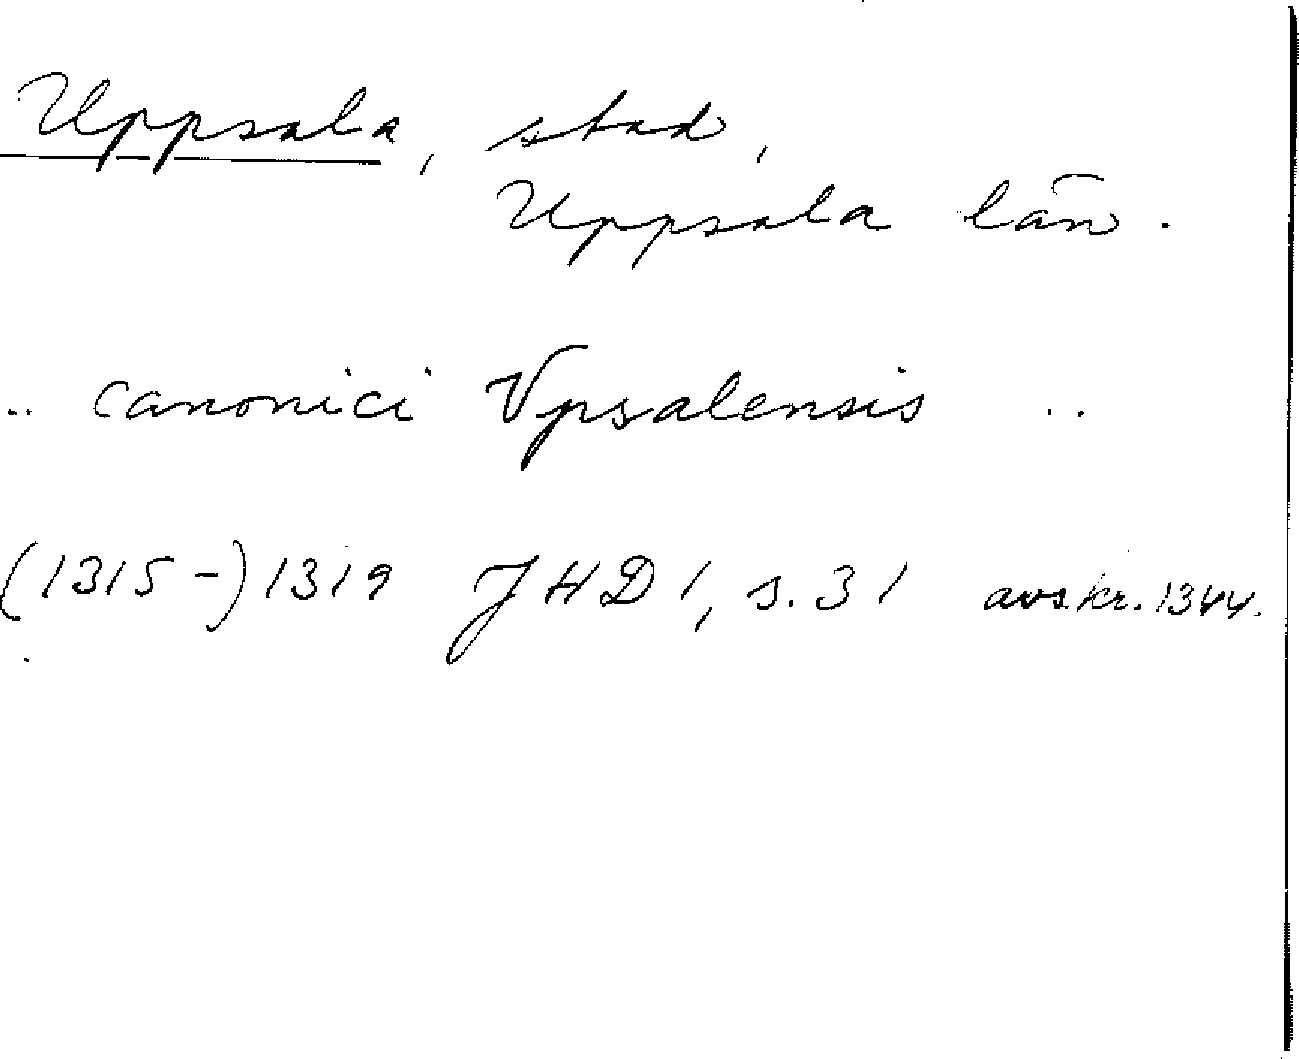 Uppsala, stad,
Uppsala län.
.. canonici Vpsalensis ..
(1315-) 1319 JHD 1, s. 31 avskr. 1344.